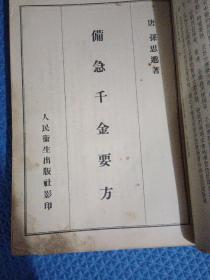 唐 孫思邈著
備急千金要方
人民衞生出版社影印